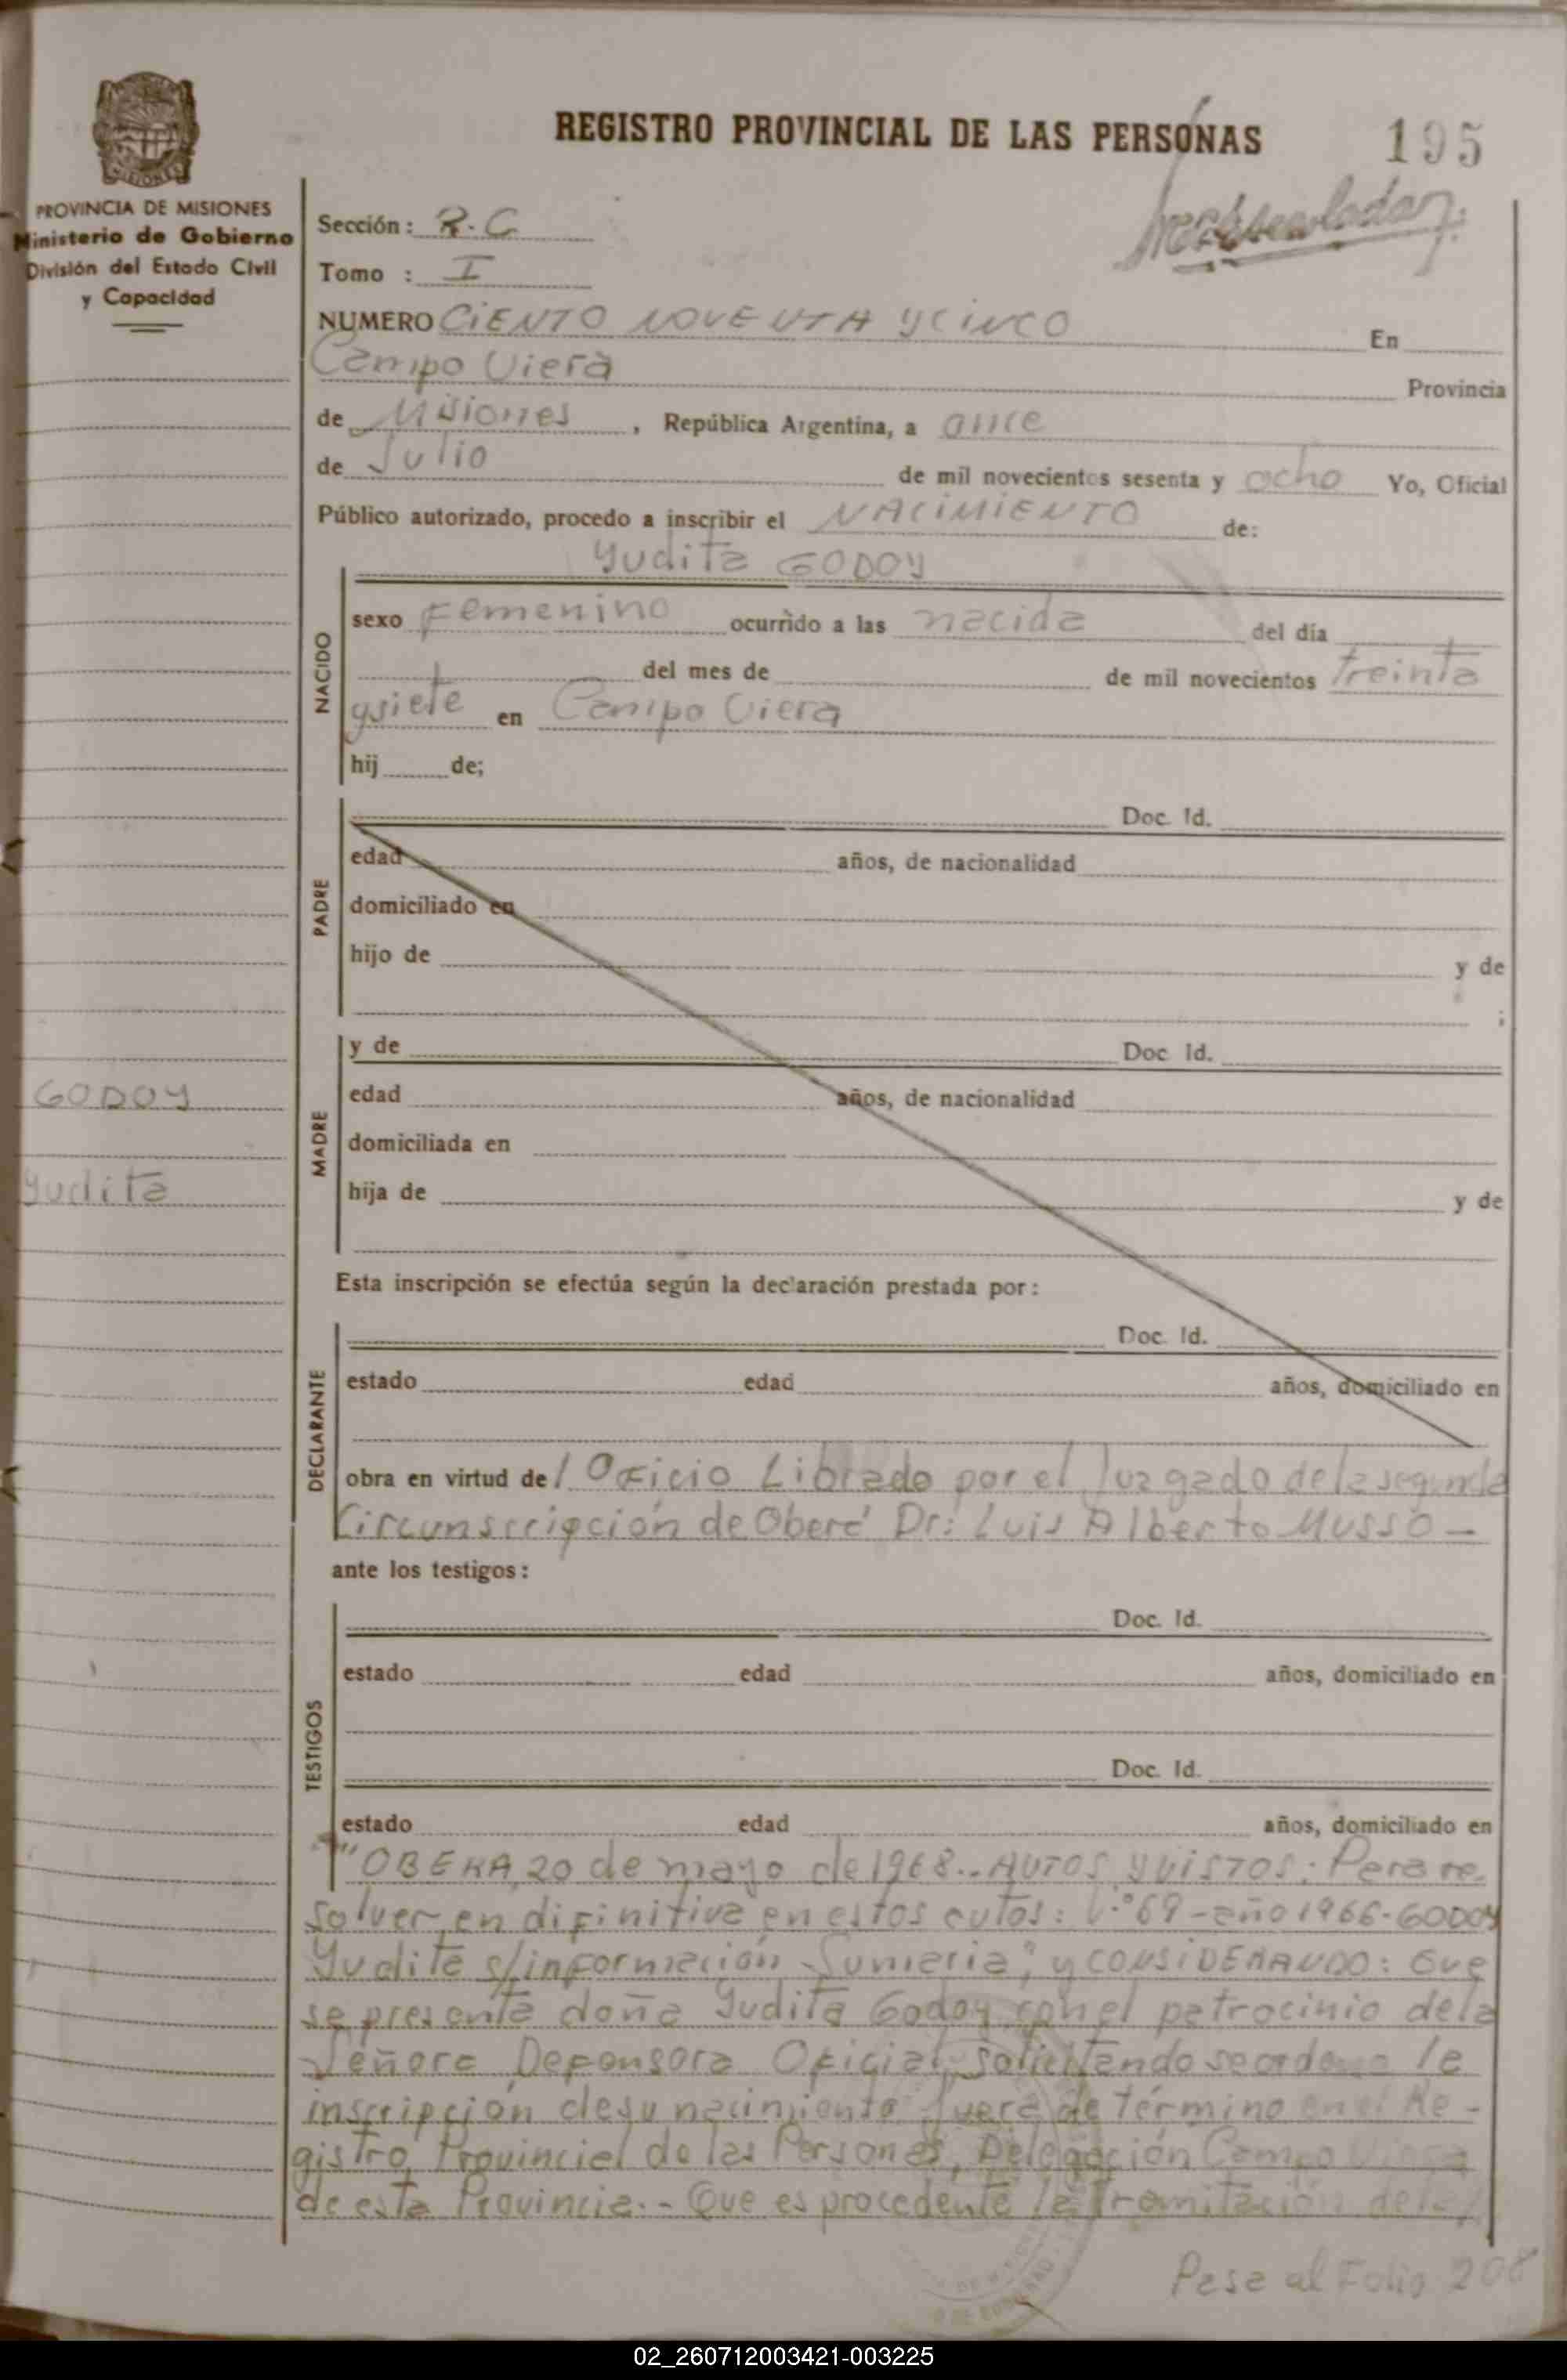 REGISTRO PROVINCIAL DE LAS PERSONAS
195
MISIONES
PROVINCIA DE MISIONES
Ministerio de Gobierno
División del Estado Civil
y Capacidad
Sección: R.C
Tomo : I
NUMERO CiENTO NOVENTA yCiNCO En
Campo Viera Provincia
de Misiones, República Argentina, a once
de Julio de mil novecientos sesenta y ocho Yo, Oficial
Público autorizado, procedo a inscribir el NACiMiENTO de:
Yudita GODOY
NACIDO
sexo Femenino ocurrido a las nacida del día
del mes de de mil novecientos treinta
ysiete en Campo Viera
hij de;
PADRE
Doc. Id.
edad años, de nacionalidad
domiciliado en
hijo de y de
;
MADRE
y de Doc. Id.
edad años, de nacionalidad
domiciliada en
hija de y de
GODOY
Yudita
Esta inscripción se efectúa según la declaración prestada por:
DECLARANTE
Doc. Id.
estado edad años, domiciliado en
obra en virtud del Oficio Librado por el Juzgado dela segunda
Circunscripción de Oberá Dr: Luis Alberto Musso -
ante los testigos:
TESTIGOS
Doc. Id.
estado edad años, domiciliado en
Doc. Id.
estado edad años, domiciliado en
"OBERA, 20 de mayo de 1968.- AUTOS y ViSTOS: Para re-
solver en difinitiva en estos autos: 69-año 1966-GODOY
Yudita s/información Sumaria", y CONSiDERANDO: Que
se presenta doña Yudita Godoy con el patrocinio dela
Señora Defensora Oficial, solicitando se ordene la
inscripción desu nacimiento fuera de término en el Re-
gistro Provincial de las Personas, Delegación Campo Viera
de esta Provincia.- Que es procedente la tramitación dela
Pasa al Folio 208
02_260712003421-003225